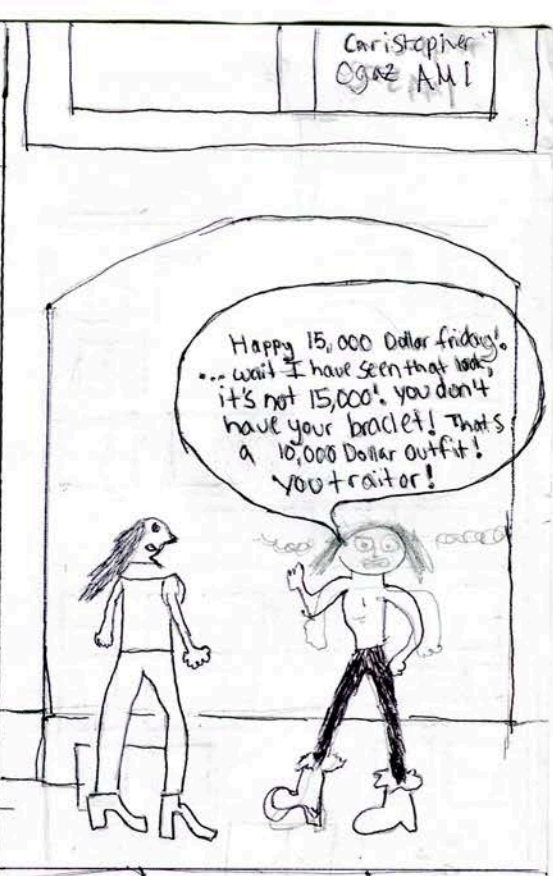 Christopher
Ogaz AMI
Happy 15,000 Dollar friday!
... wait I have seen that look,
it's not 15,000! you don't
have your braclet! That's
a 10,000 Dollar outfit!
you traitor!